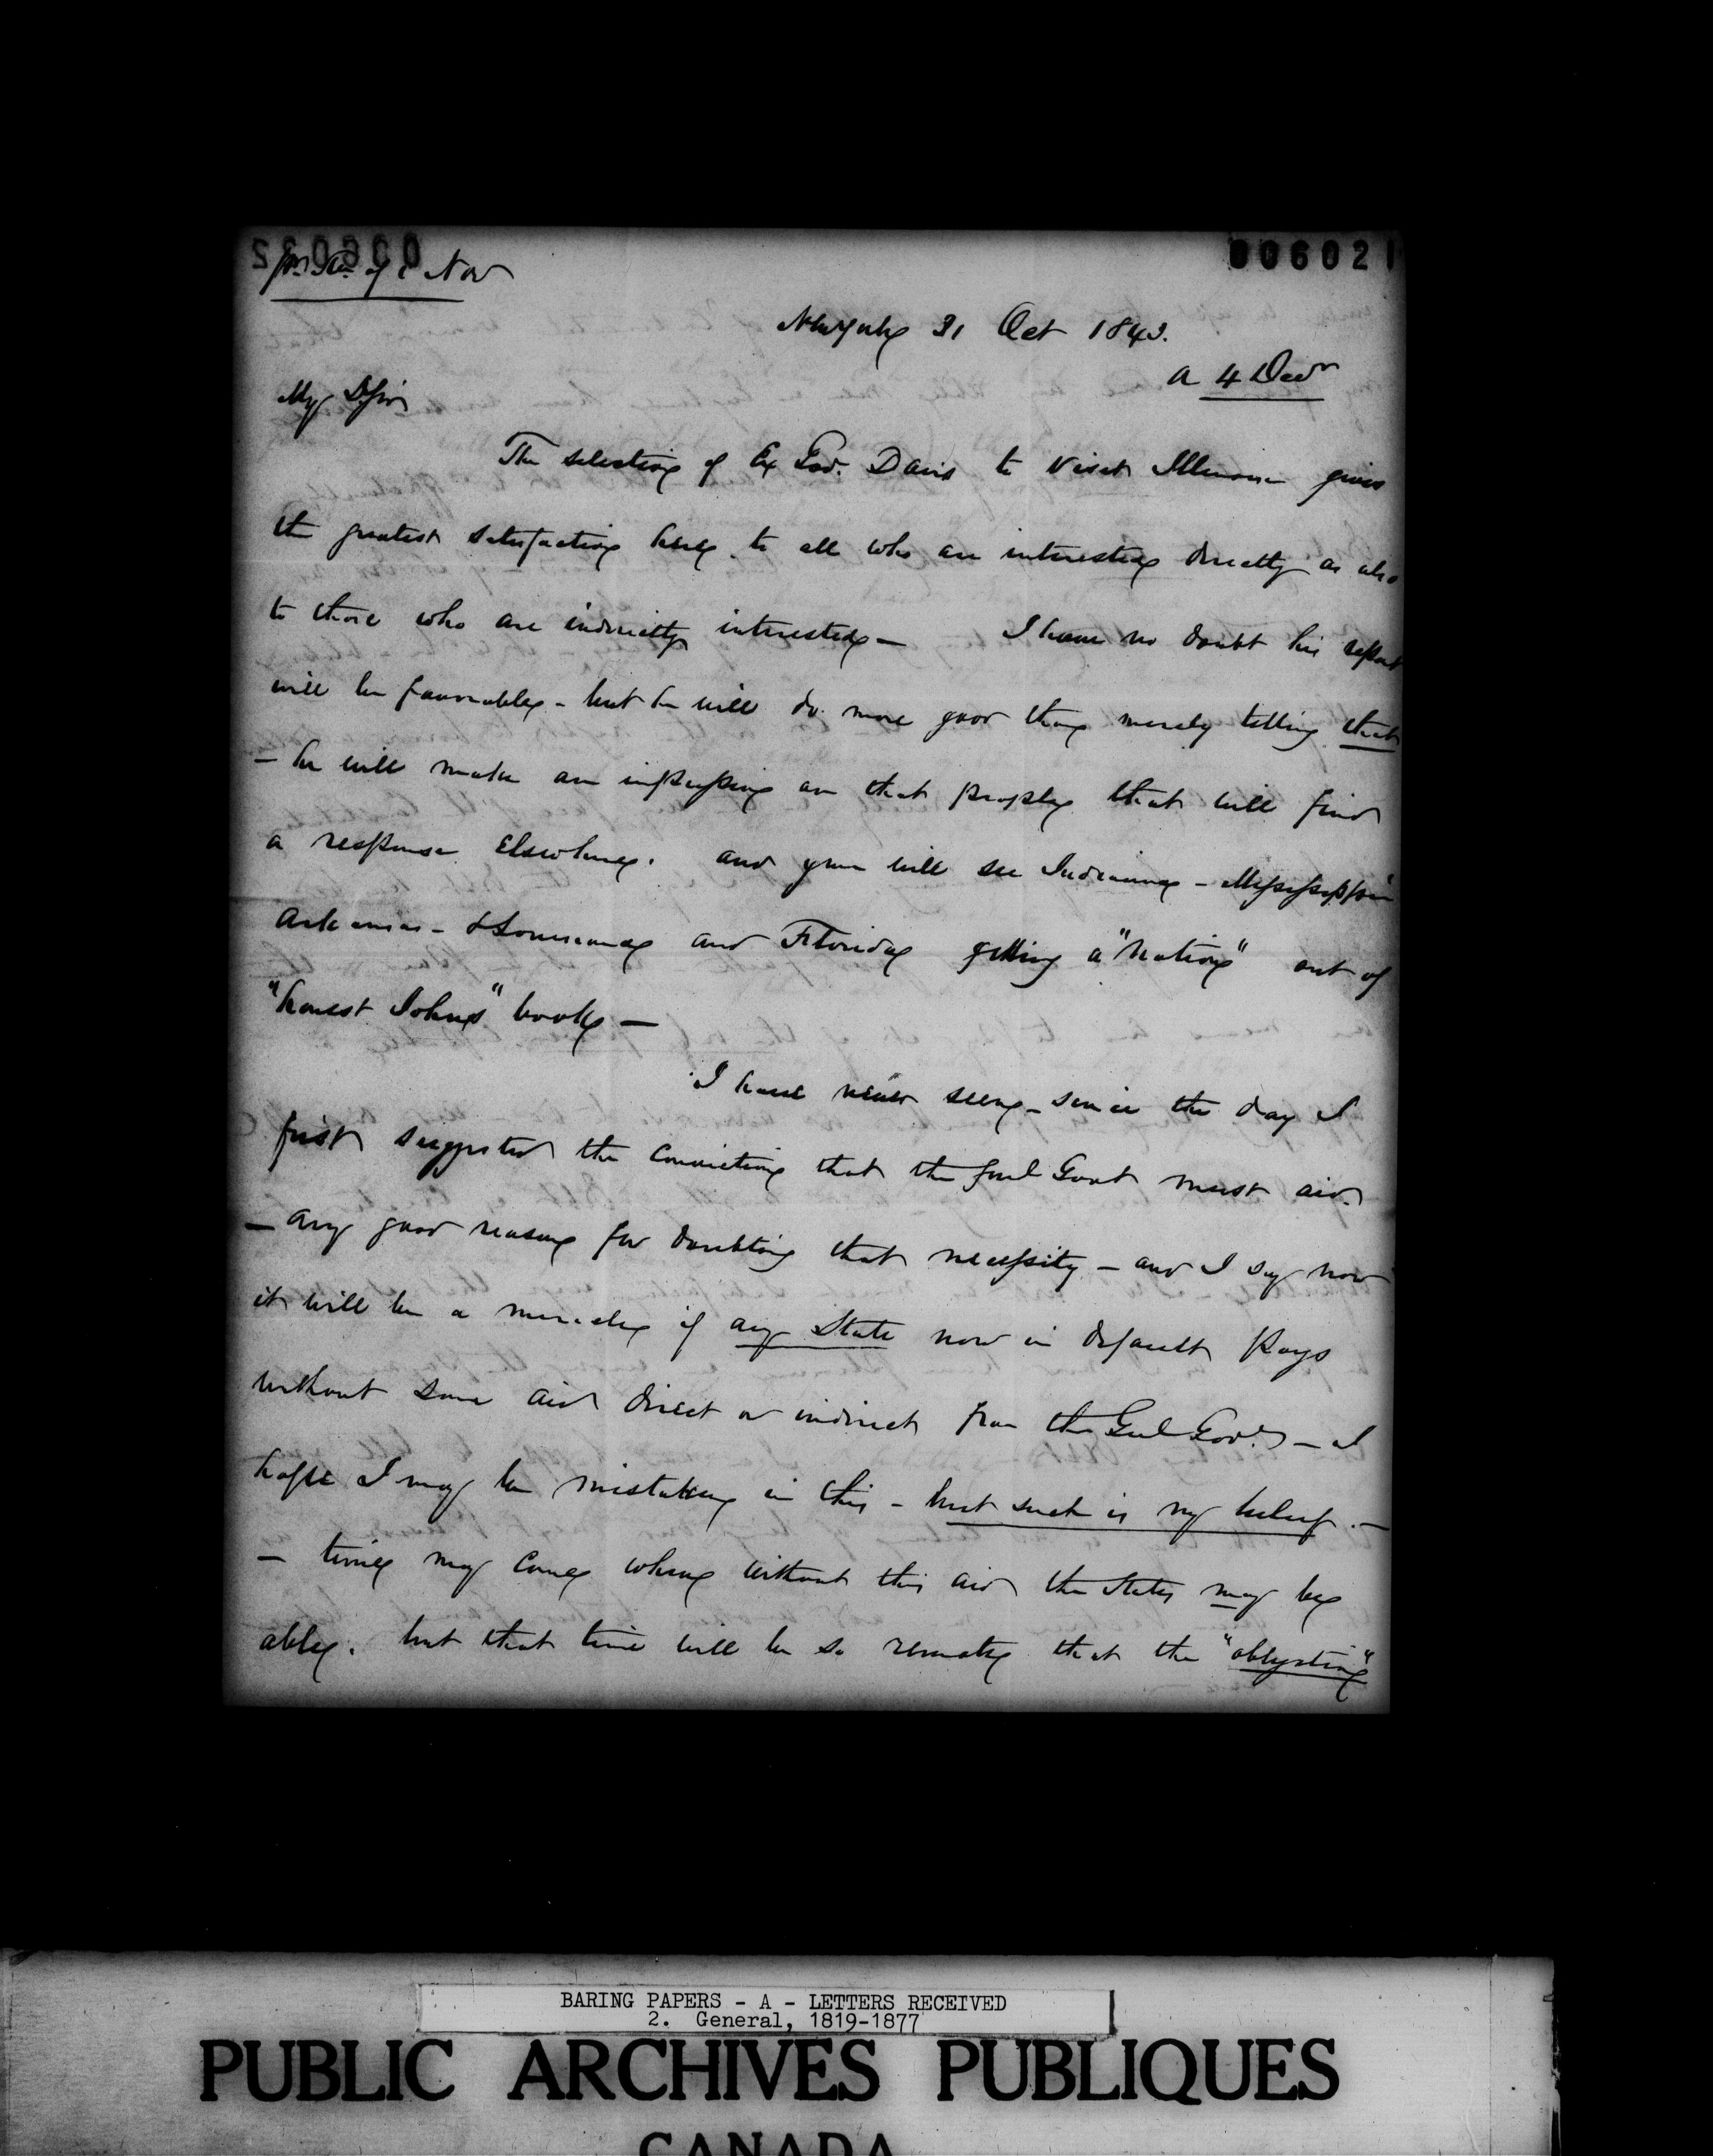 006021
Nov
New York 31 Oct 1843.
a 4 Decr
My D Sir
The selection of Ex Gov. Davis to visit Illinois gives
the greatest satisfaction here to all who are interested directly as also
to those who are indirectly interested — I have no doubt his report
will be favorable - but he will do more good than merely telling that
- he will make an impression on that people that will find
a response elsewhere. and you will see Indiana - Mississippi
Arkansas - & Louisiana and Florida getting a "notion" out of
"honest Johns" book —
I have never seen - since the day I
first suggested the conviction that the Genl Govt must aid.
- any good reason for doubting that necessity - and I say now
it will be a miracle if any State now in default pays
without some aid direct or indirect from the Genl Govt. - I
hope I may be mistaken in this - but such is my belief. -
- time may come when without this aid the States may be
able. but that time will be so remote that the "obligation"
BARING PAPERS - A - LETTERS RECEIVED
2. General, 1819-1877
PUBLIC ARCHIVES PUBLIQUES
CANADA